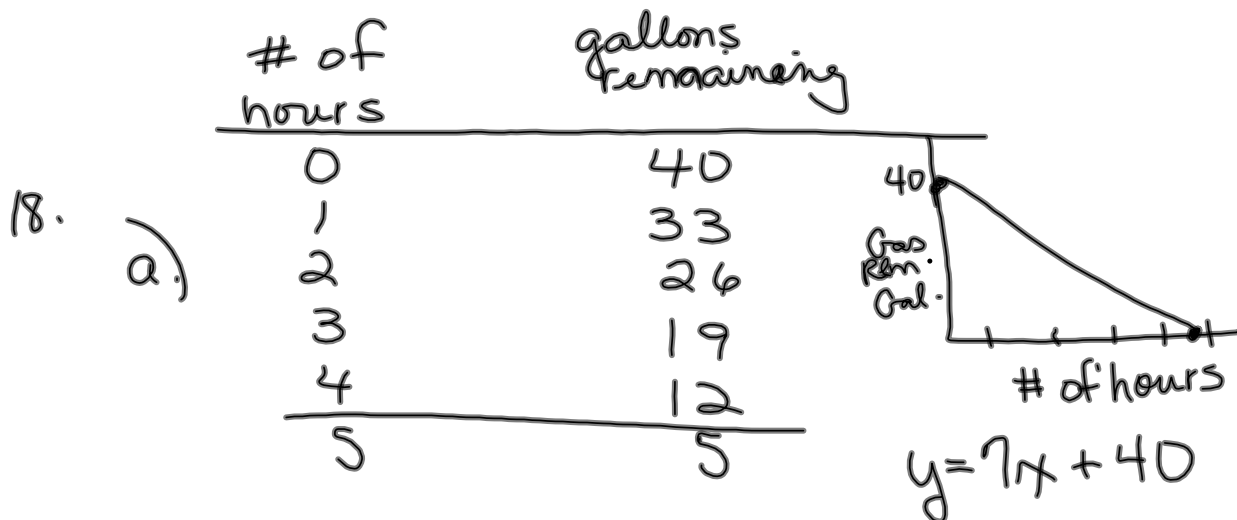 # of hours
gallons remaining
18.
a.)
0 40
1 33
2 26
3 19
4 12
5 5
40
Gas
Rem.
Gal.
# of hours
y=7x+40